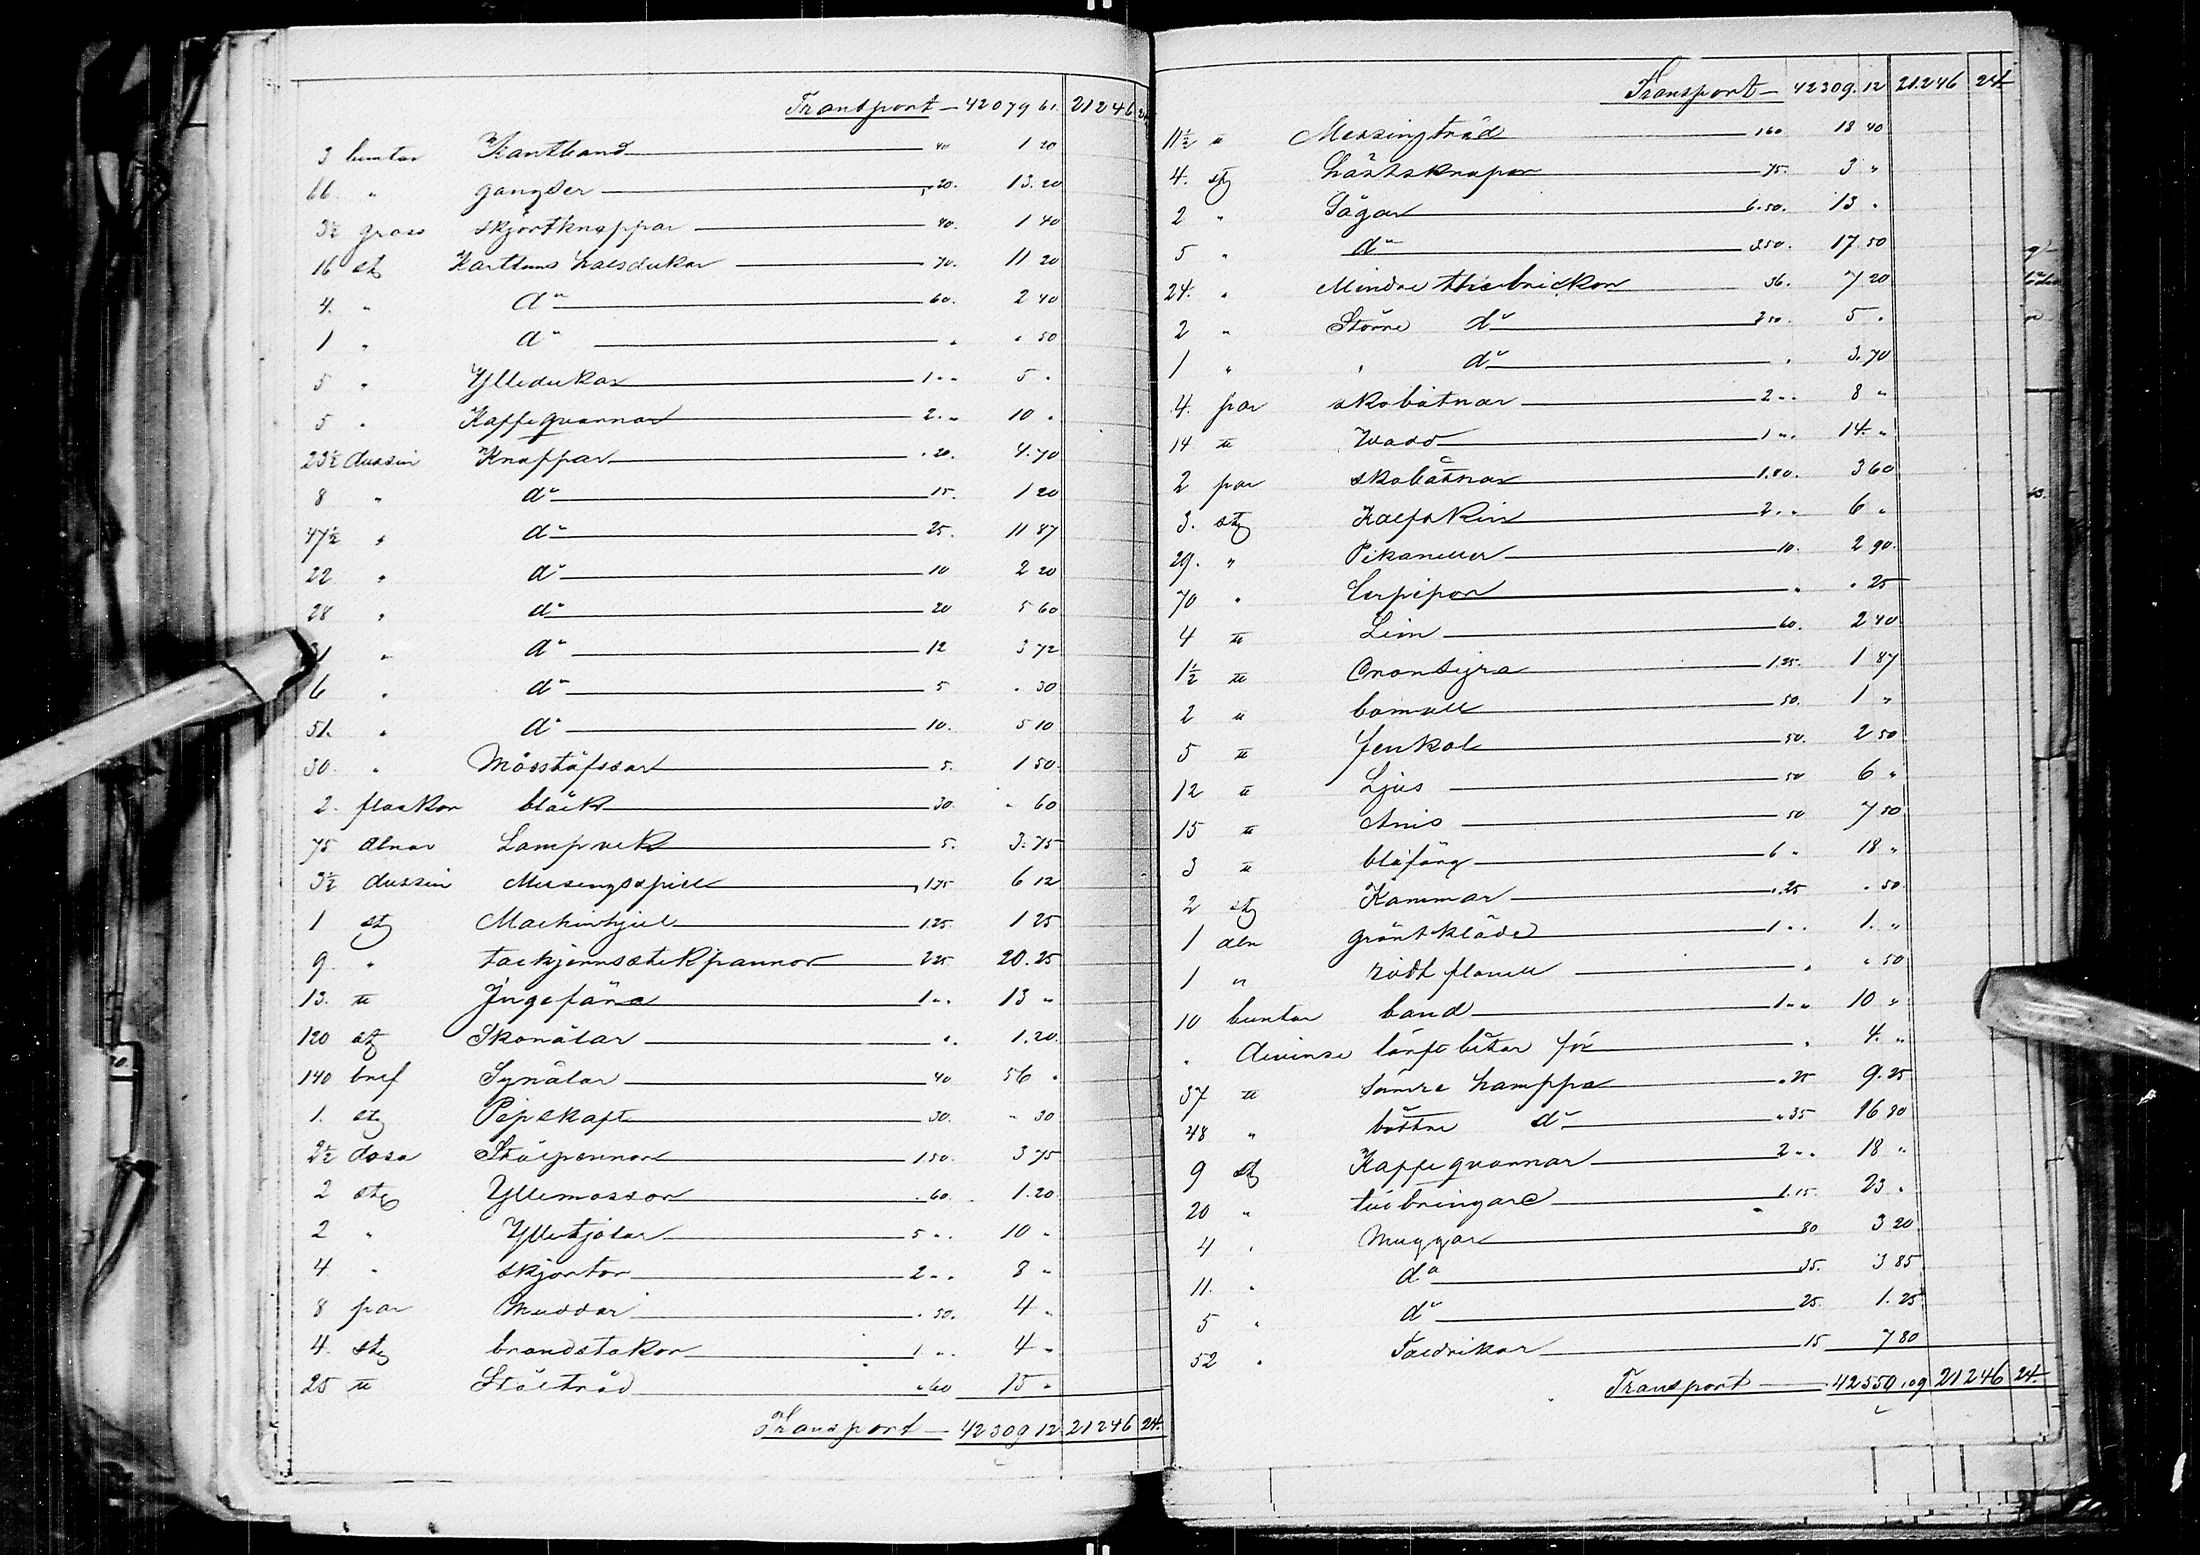 Transport — 42079 61. 21246 24
3 buntar Kantband — 40 1 20
66. " gangder — " 20. 13. 20
3½ gross skjortknappar — 40. 1 40
16 st Karttuns halsdukar — 70. 11 20
4. " do — 60. 2 40
1 " do — " " 50
5 " Ylledukar — 1 " " 5 "
5 " Kaffeqvarnar — 2. " 10 "
23½ dussin Knappar — " 20. 4. 70
8 " do — 15. 1 20
47½ " do — 25. 11 87
22 " do — 10 2 20
28 " do — 20 5 60
31 " do — 12 3 72
6 " do — 5 " 30
51. " do — 10. 5 10
30. " Mösstofsar — 5. 1 50.
2. flaskor bläck — 30. " 60
75 alnar Lampvek — 5. 3. 75
3½ dussin Messingsspill — 1 75 6 12
1 st Maskinhjul — 1.25. 1 25
9 " tackjernsstekpannor — 2 25 20. 25
13. ℔ Ingefära — 1 " " 13 "
120 st Skonålar — " 1. 20
140 bref Synålar — 40 56 "
1. st Pipskaft — 30. " 30
2½ dosa Stålpennor — 1 50. 3 75
2 st Yllemössor — " 60 1. 20
2 " Ylletjolar — 5 " " 10 "
4 " skjortor — 2 " " 8 "
8 par Muddar — " 50. 4 "
4. st brandstakor — 1 " " 4 "
25 ℔ Ståltråd — " 60 15 "
Transport — 42309 12 21246 24.
Transport — 42309. 12 21.246 24
11½ ℔ Messingtråd — 160 18 40
4. st Låstsknapar — 75. 3 "
2 " Sågar — 6.50. 13 "
5 " do — 3 50. 17 50
24. " Mindre thebrickor — 36. 7 20
2 " Större do — 2 50. 5 "
1 " " do — " 3. 70
4. par skobåtnar — 2 " " 8 "
14 ℔ Wadd — 1 " " 14. "
2 par skobåtnar — 1.80. 3 60
3. st Kalfskin — 2. " 6 "
29. " Pikaneller — 10. 2 90.
70 " Lerpipor — " " 25
4 ℔ Lim — 60. 2 40
1½ ℔ — 1.25. 1 87
2 ℔ bomull — 50. 1 "
5 ℔ fenkol — 50. 2 50
12 ℔ Ljus — 50 6 "
15 ℔ Anis — 50 7 50
3 ℔ blåfärg — 6 " 18 "
2 st Kammar — " 25 " 50.
1 aln grönt kläde — 1 " " 1. "
1 " rödt flanell — " " 50
10 buntar band — 1 " " 10 "
" diverse bitar för — " 4. "
37 ℔ sämre hamppa — " 25 9. 25
48 " bättre do — " 35 16 80
9 st Kaffeqvarnar — 2 " " 18 "
20 " tillbringare — 1.15. 23 "
4 " Muggar — 80 3 20
11. " do — 35. 3 85
5 " do — 25. 1. 25
52 " Taldrikar — 15 7 80
Transport — 42550 09 21246 24.